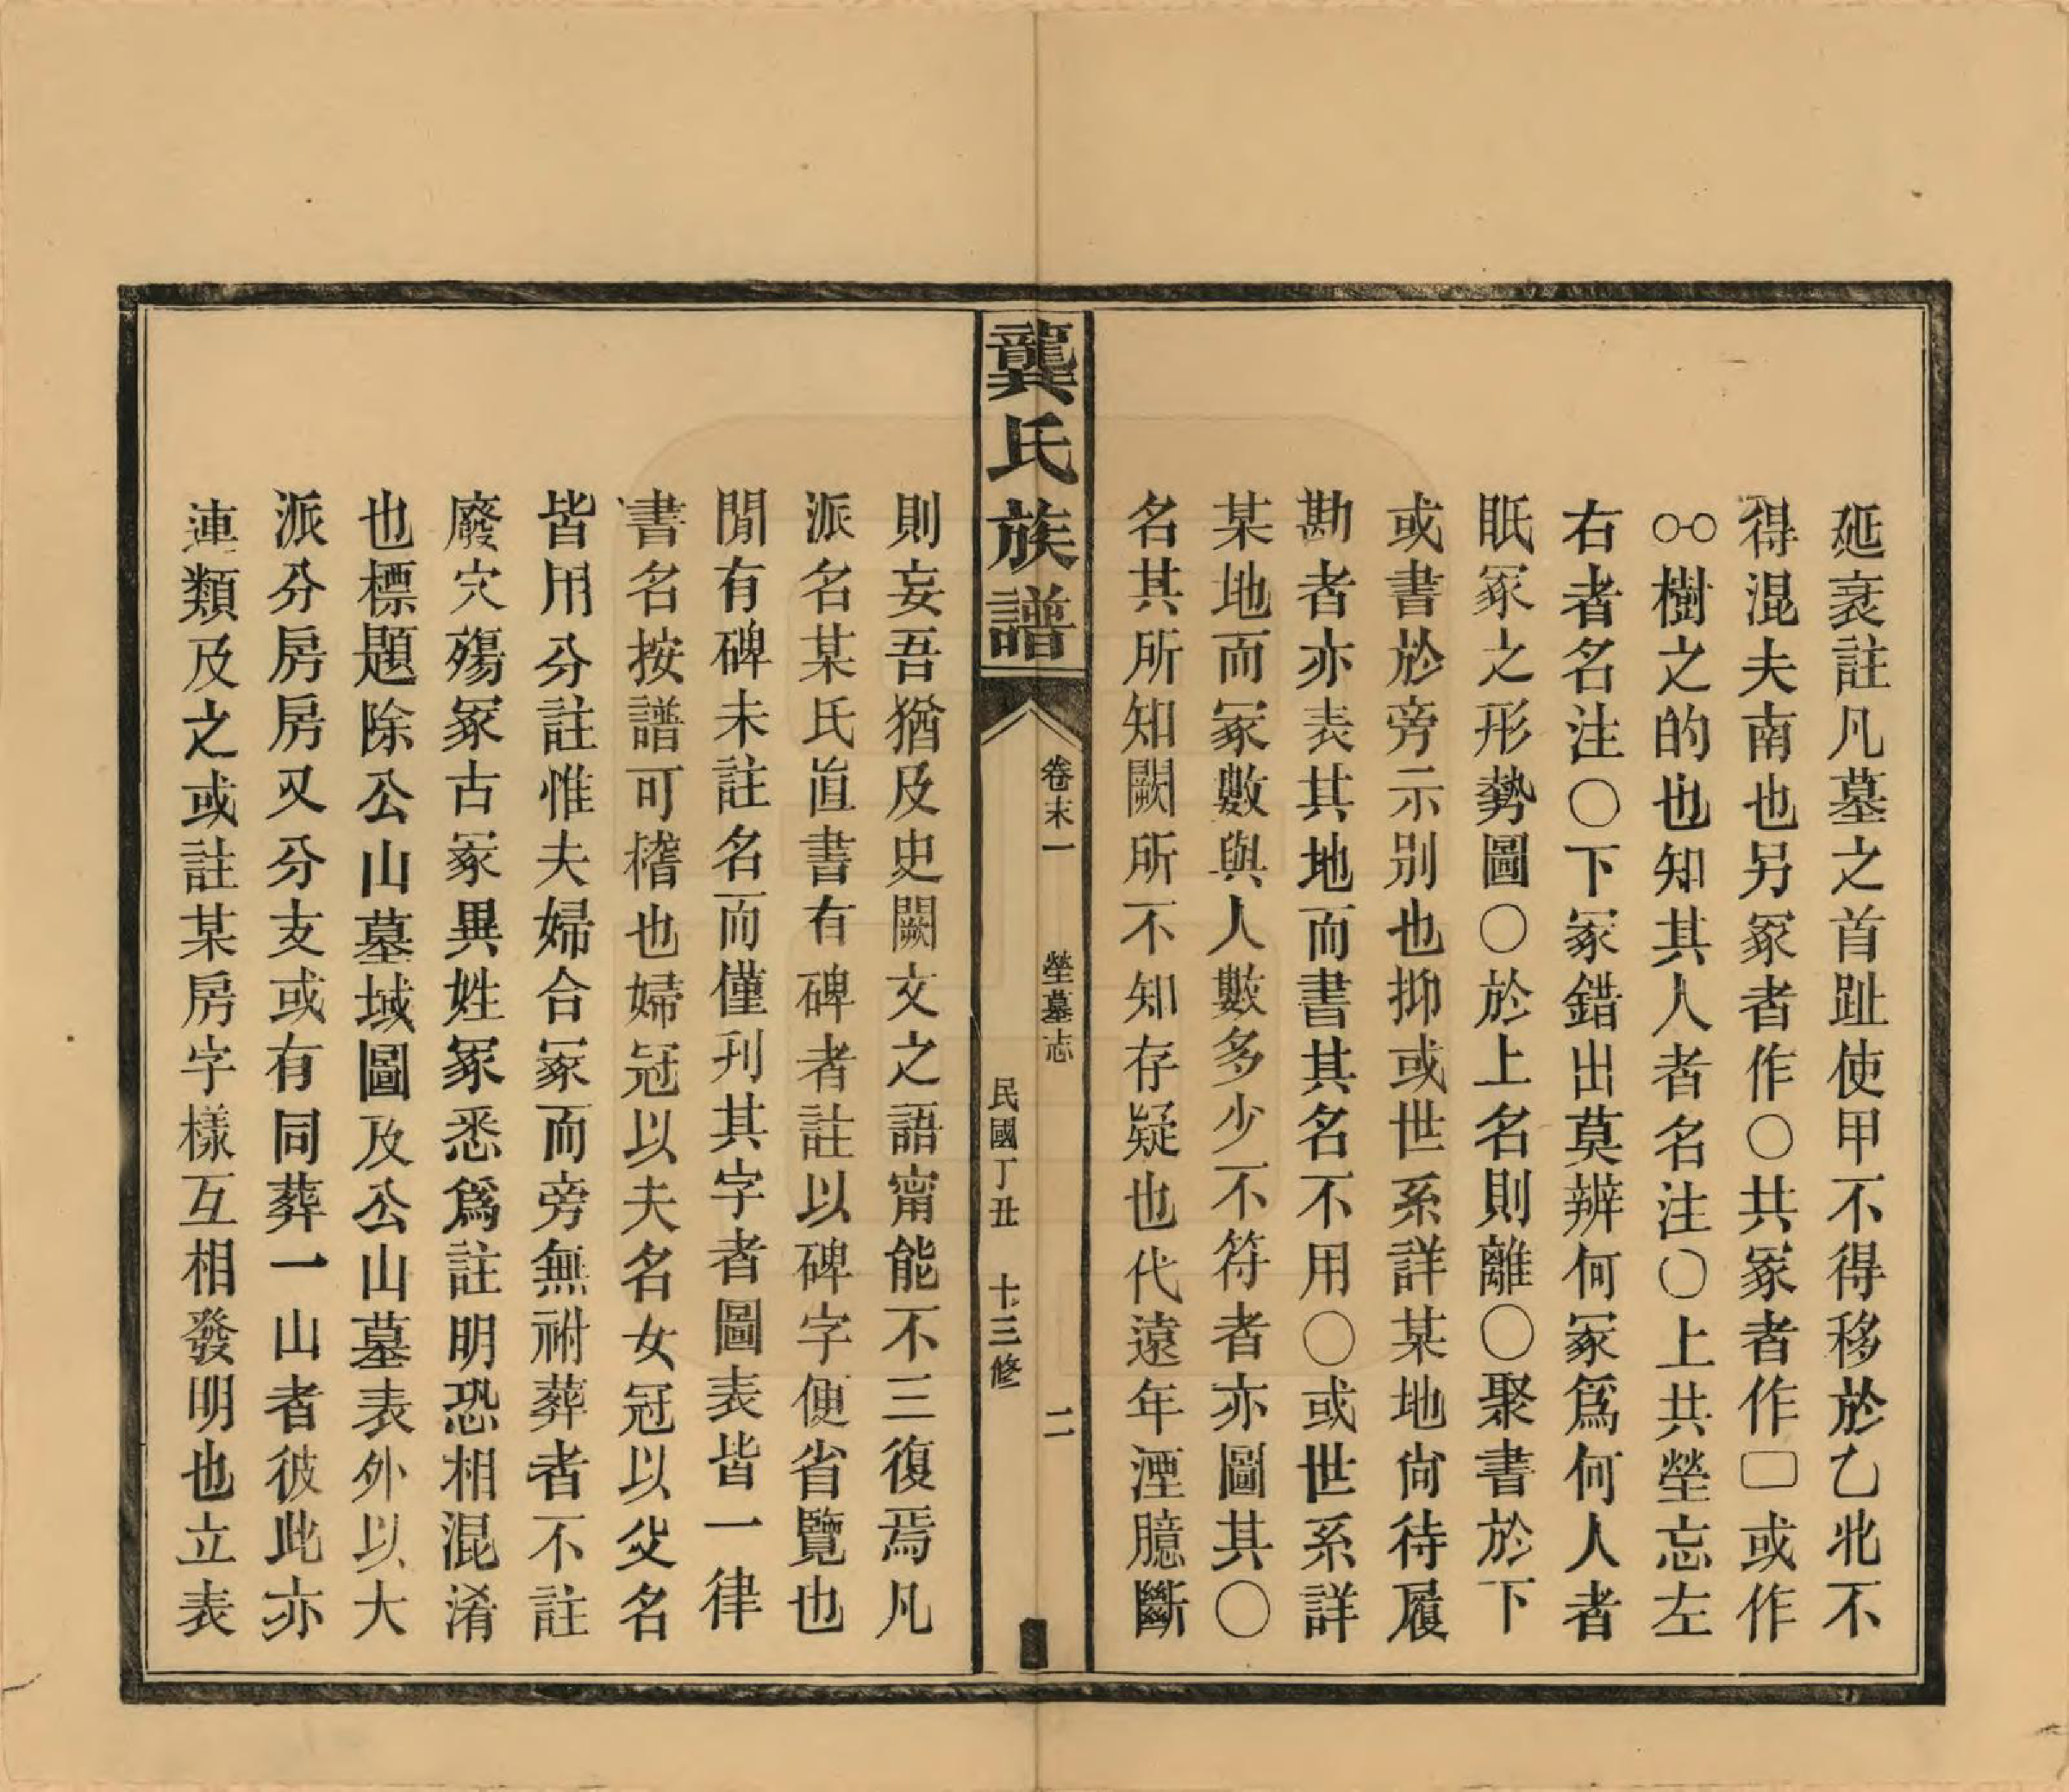 延袤註凡墓之首趾使甲不得移於乙北不
得混夫南也另冢者作○共冢者作□或作
○-○樹之的也知其人者名注○上共塋忘左
右者名注○下冢錯出莫辨何冢爲何人者
眂冢之形勢圖○於上名則離○聚書於下
或書於旁示別也抑或世系詳某地尙待履
勘者亦表其地而書其名不用○或世系詳
某地而冢數與人數多少不符者亦圖其○
名其所知闕所不知存疑也代遠年湮臆斷
龔氏族譜
卷末一 塋墓志 二
民國丁丑 十三修
則妄吾猶及史闕文之語甯能不三復焉凡
派名某氏直書有碑者註以碑字便省覽也
閒有碑未註名而僅刋其字者圖表皆一律
書名按譜可稽也婦冠以夫名女冠以父名
皆用分註惟夫婦合冢而旁無祔葬者不註
廢穴殤冢古冢異姓冢悉爲註明恐相混淆
也標題除公山墓域圖及公山墓表外以大
派分房房又分支或有同葬一山者彼此亦
連類及之或註某房字樣互相發明也立表